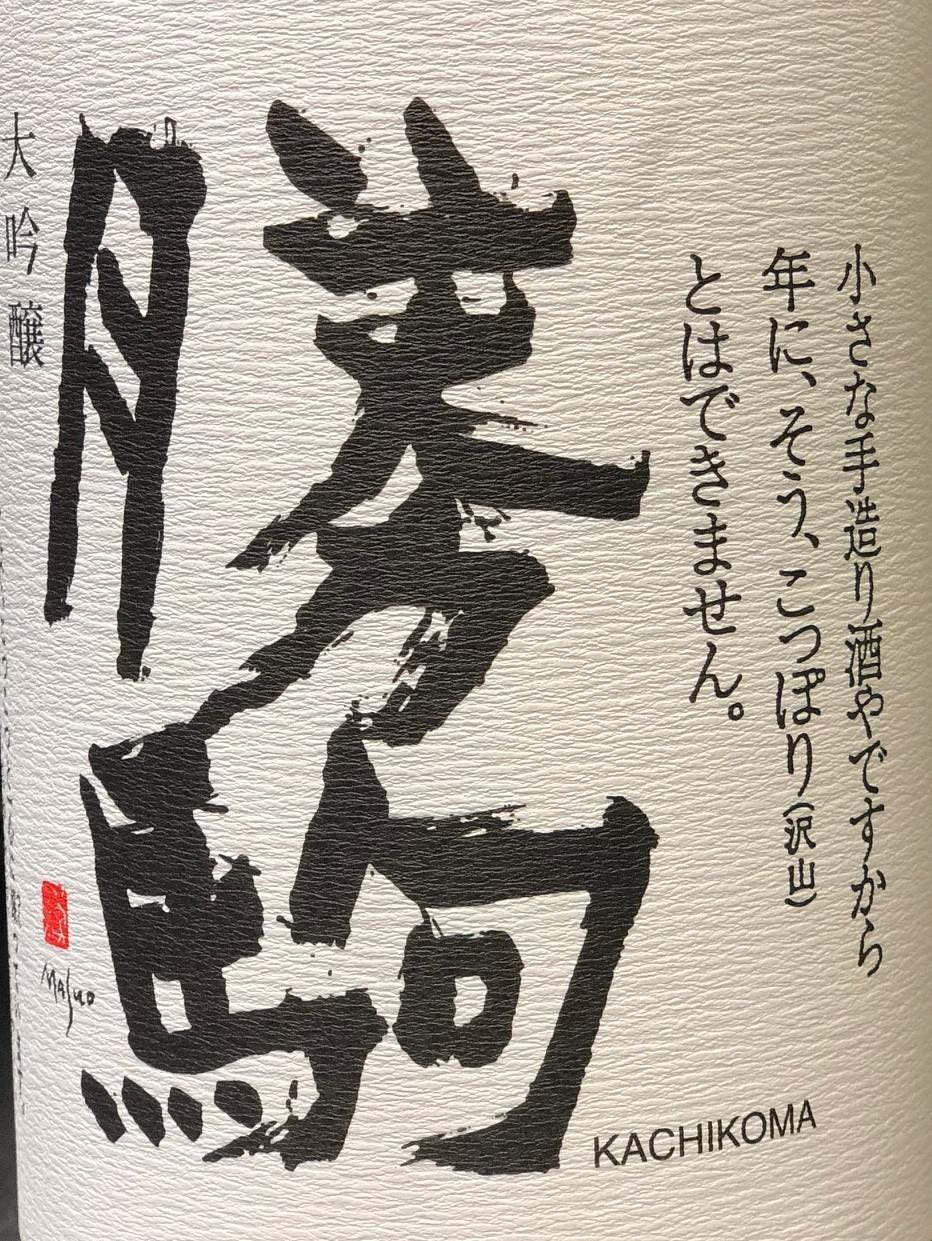 小さな手造り酒やですから
年に、そう、こつぽり(沢山)
とはできません。
勝駒
大吟醸
Masuo
KACHIKOMA